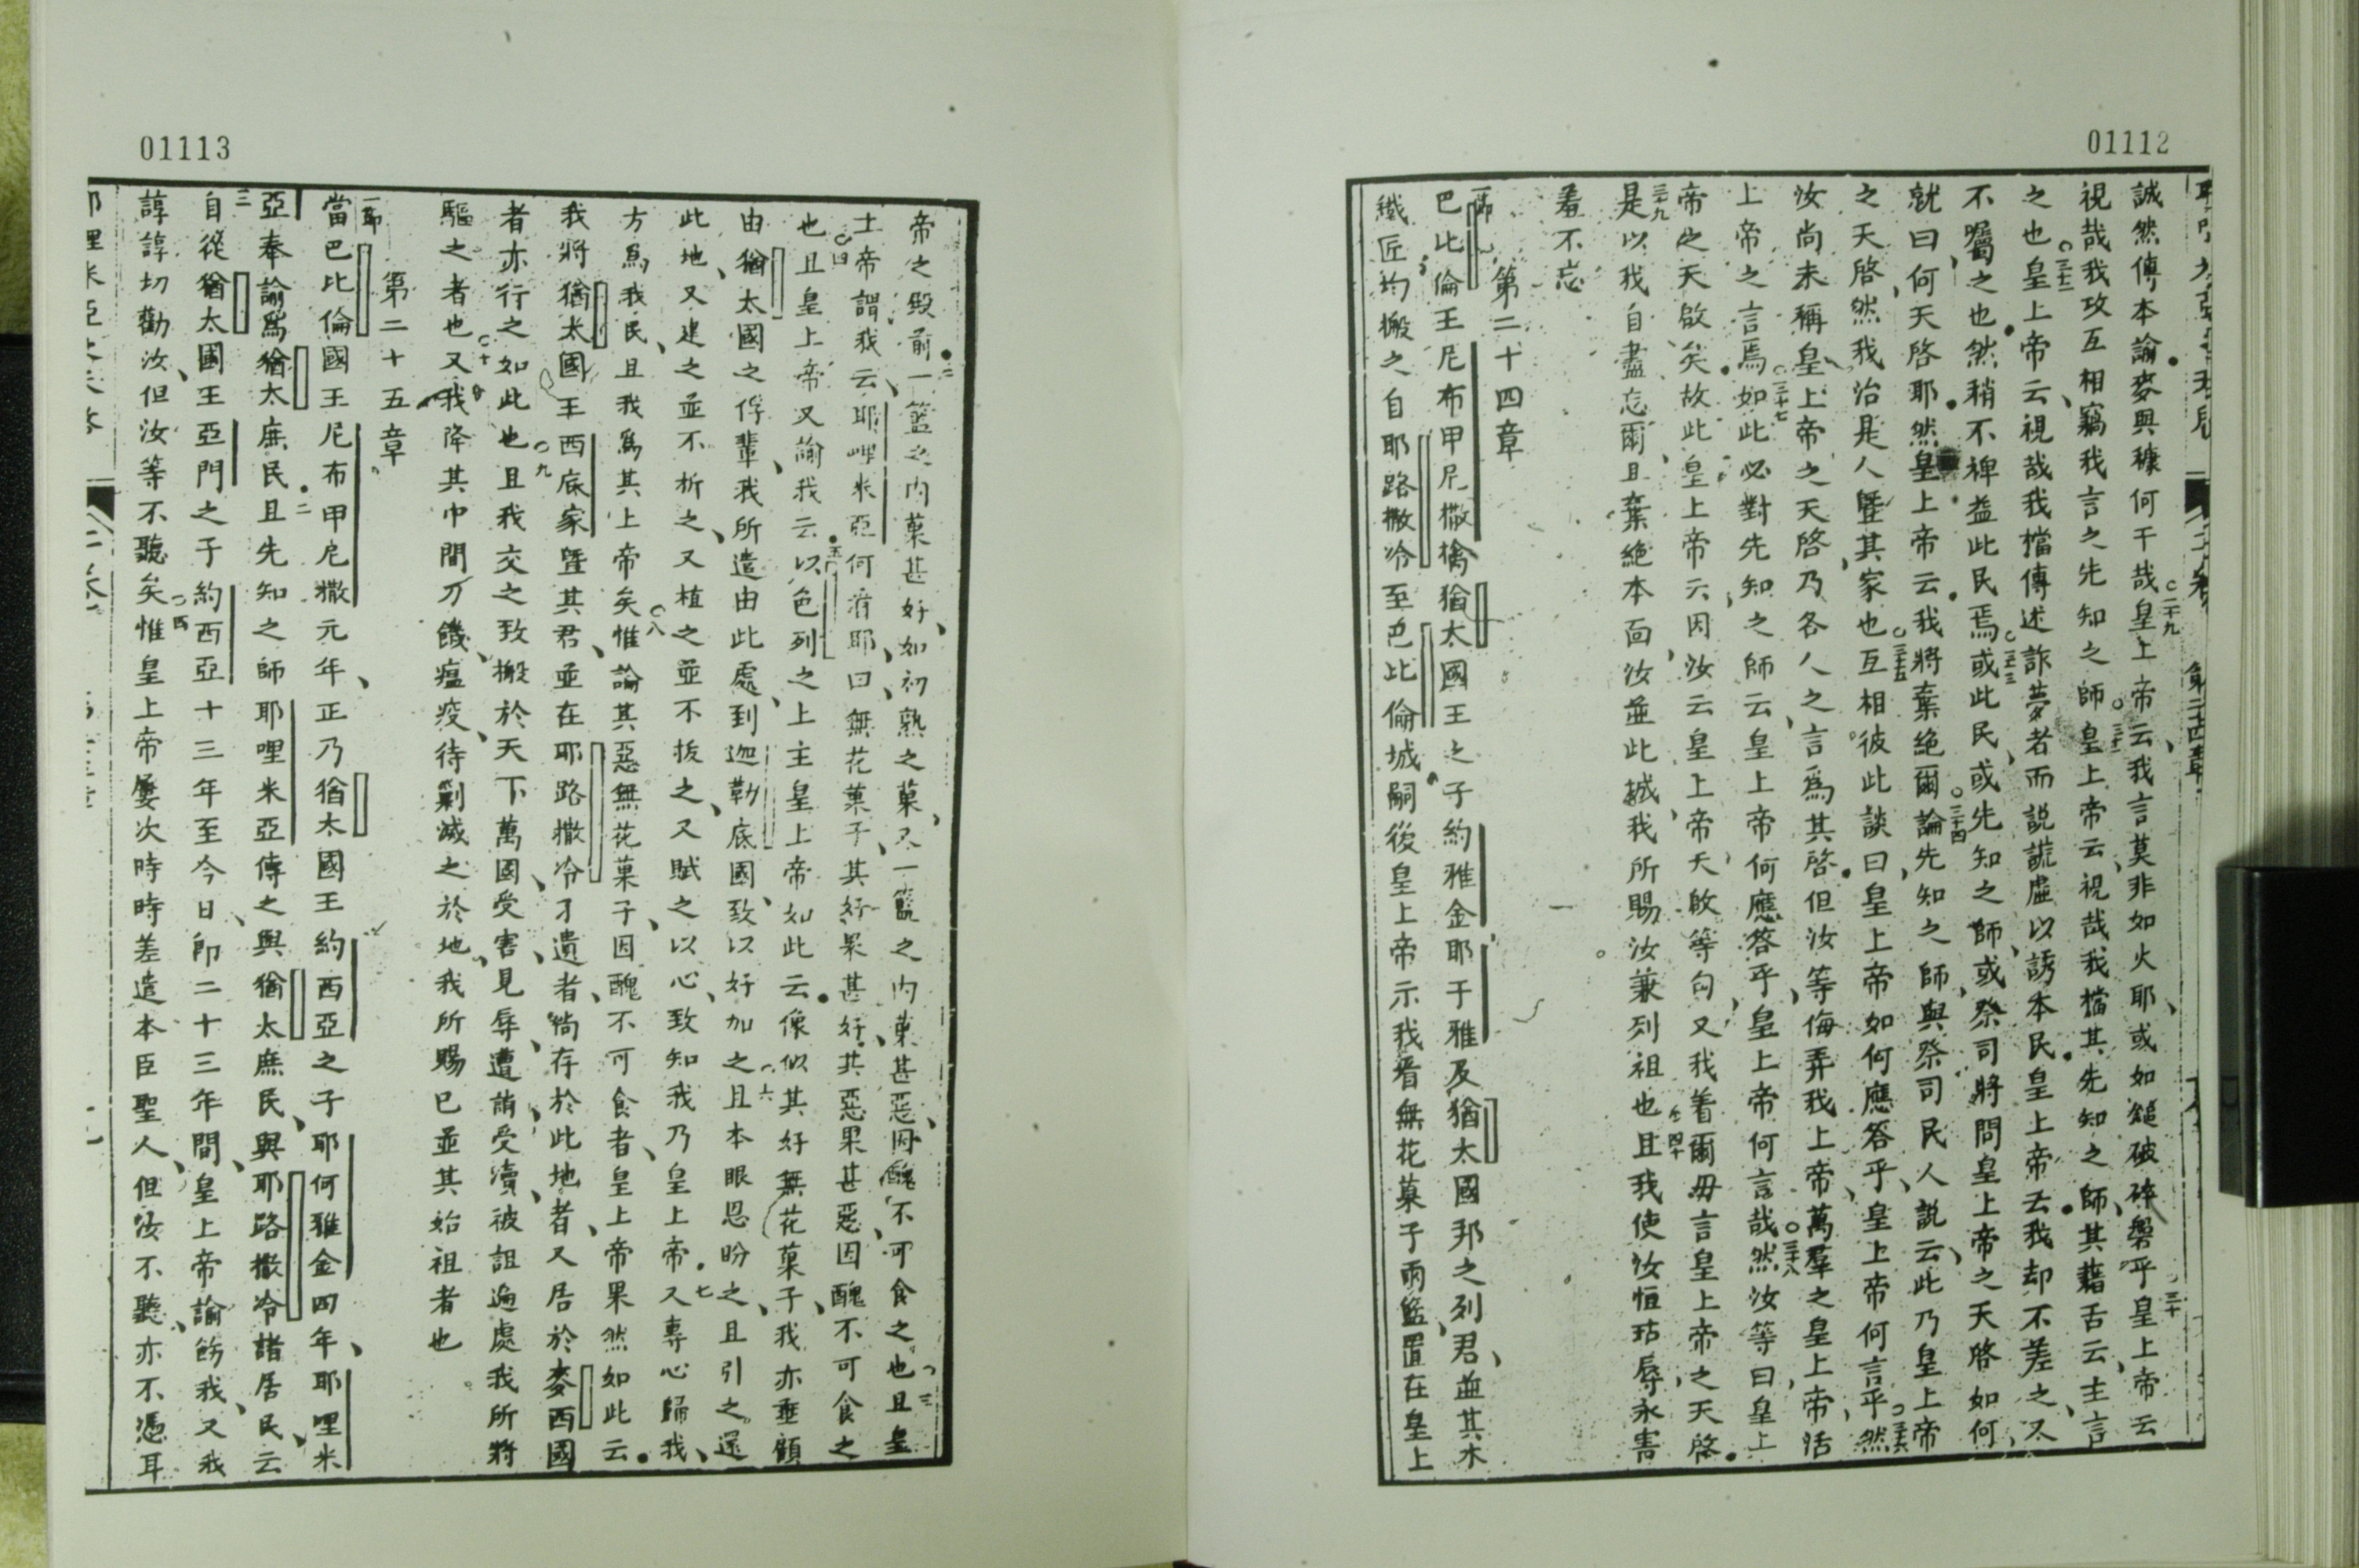 01112
誠然傳本諭麥與糠何干哉皇上帝云我言莫非如火耶或如鎚破碎磐乎皇上帝云
視哉我攻互相竊我言之先知之師皇上帝云視哉我擋其先知之師其藉舌云主言
之也皇上帝云視哉我擋傳述詐夢者而說謊虛以誘本民皇上帝云我却不差之又
不囑之也然稍不裨益此民焉或此民或先知之師或祭司將問皇上帝之天啓如何
就曰何天啓耶然皇上帝云我將棄絕爾論先知之師與祭司民人說云此乃皇上帝
之天啓然我治是人曁其家也互相彼此談曰皇上帝如何應答乎皇上帝何言乎然
汝尚未稱皇上帝之天啓乃各人之言爲其啓但汝等侮弄我上帝萬羣之皇上帝活
上帝之言焉如此必對先知之師云皇上帝何應答乎皇上帝何言哉然汝等曰皇上
帝之天啟矣故此皇上帝云因汝云皇上帝天啟等句又我着爾毋言皇上帝之天啓
是以我自盡忘爾且棄絕本面汝並此城我所賜汝兼列祖也且我使汝恒玷辱永害
羞不忘
第二十四章
巴比倫王尼布甲尼撒擒猶太國王之子約雅金耶于雅及猶太國邦之列君並其木
鐵匠均搬之自耶路撒冷至巴比倫城嗣後皇上帝示我看無花菓子兩籃置在皇上
01113
帝之殿前一籃之內菓甚好如初熟之菓又一籃之內菓甚惡因醜不可食之也且皇
上帝謂我云耶哩米亞何看耶曰無花菓子其好果甚好其惡果甚惡因醜不可食之
也且皇上帝又諭我云以色列之上主皇上帝如此云像似其好無花菓子我亦垂顧
由猶太國之俘輩我所遣由此處到迦勒底國致以好加之且本眼恩盼之且引之還
此地又建之並不折之又植之並不拔之又賦之以心致知我乃皇上帝又專心歸我
方爲我民且我爲其上帝矣惟論其惡無花菓子因醜不可食者皇上帝果然如此云
我將猶太國王西底家曁其君並在耶路撒冷才遺者尚存於此地者又居於麥西國
者亦行之如此也且我交之致搬於天下萬國受害見辱遭誚受瀆被詛遍處我所將
驅之者也又我降其中間刀饑瘟疫待剿滅之於地我所賜巳並其始祖者也
第二十五章
當巴比倫國王尼布甲尼撒元年正乃猶太國王約西亞之子耶何雅金四年耶哩米
亞奉諭爲猶太庶民且先知之師耶哩米亞傳之與猶太庶民與耶路撒冷諸居民云
自從猶太國王亞門之子約西亞十三年至今日卽二十三年間皇上帝諭飭我又我
諄諄切勸汝但汝等不聽矣惟皇上帝屢次時時差遣本臣聖人但汝不聽亦不憑耳